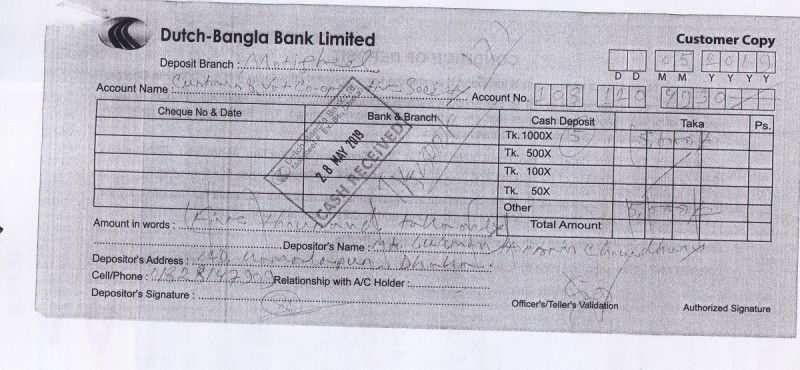 Dutch-Bangla Bank Limited
Customer Copy
Deposit Branch : Motijheel
05 2019
D D M M Y Y Y Y
Account Name : & Vat Co-operative Society
Account No. 103 120
Cheque No & Date Bank & Branch Cash Deposit Taka Ps.
Tk. 1000X 5 5,000/-
Tk. 500X
Tk. 100X
Tk. 50X
Other
Total Amount 5,000/-
Dutch-Bangla Bank
28 MAY 2019
CASH RECEIVED
Amount in words : Five thousand taka only
Depositor's Name : Md. Hossain Chowdhury
Depositor's Address : Kamalapur, Dhaka.
Cell/Phone : Relationship with A/C Holder :
Depositor's Signature :
Officer's/Teller's Validation
Authorized Signature